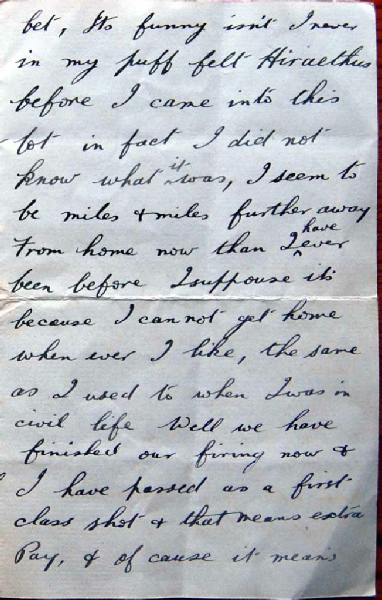 bet, Its funny isn't I never
in my puff felt Hiraethus
before I came into this
lot in fact I did not
know what it was, I seem to
be miles & miles further away
From home now than I have ever
been before I suppouse its
because I cannot get home
when ever I like, the same
as I used to when I was in
civil life Well we have
finished our firing now &
I have passed as a first
class shot & that means extra
Pay, & of cause it means